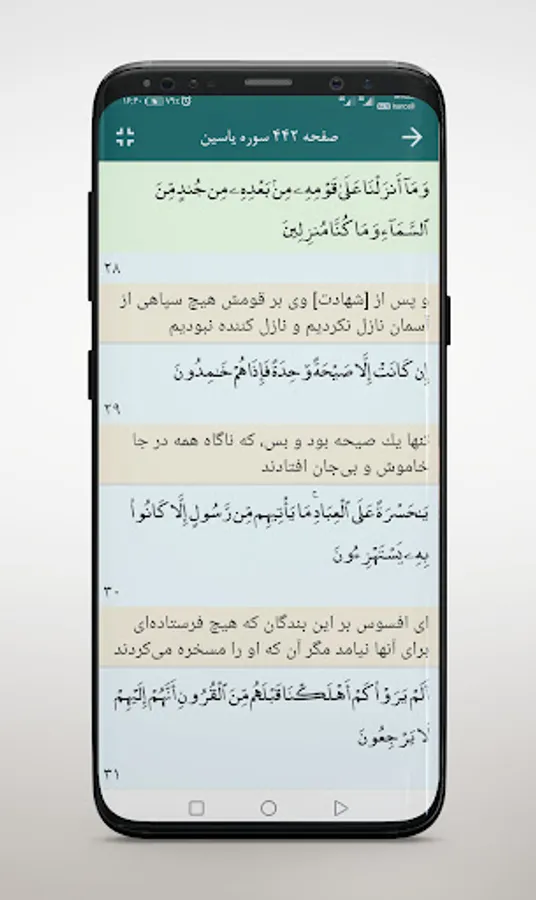 ۱۶:۲۰ ۷۹٪
صفحه ۴۴۲ سوره یاسین
وَمَآ أَنزَلْنَا عَلَىٰ قَوْمِهِۦ مِنۢ بَعْدِهِۦ مِن جُندٍ مِّنَ
ٱلسَّمَآءِ وَمَا كُنَّا مُنزِلِينَ
۲۸
و پس از [شهادت] وی بر قومش هیچ سپاهی از
آسمان نازل نکردیم و نازل کننده نبودیم
إِن كَانَتْ إِلَّا صَيْحَةً وَٰحِدَةً فَإِذَا هُمْ خَـٰمِدُونَ
۲۹
تنها یك صیحه بود و بس، که ناگاه همه در جا
خاموش و بی‌جان افتادند
يَـٰحَسْرَةً عَلَى ٱلْعِبَادِ ۚ مَا يَأْتِيهِم مِّن رَّسُولٍ إِلَّا كَانُوا۟
بِهِۦ يَسْتَهْزِءُونَ
۳۰
ای افسوس بر این بندگان که هیچ فرستاده‌ای
برای آنها نیامد مگر آن که او را مسخره می‌کردند
أَلَمْ يَرَوْا۟ كَمْ أَهْلَكْنَا قَبْلَهُم مِّنَ ٱلْقُرُونِ أَنَّهُمْ إِلَيْهِمْ
لَا يَرْجِعُونَ
۳۱